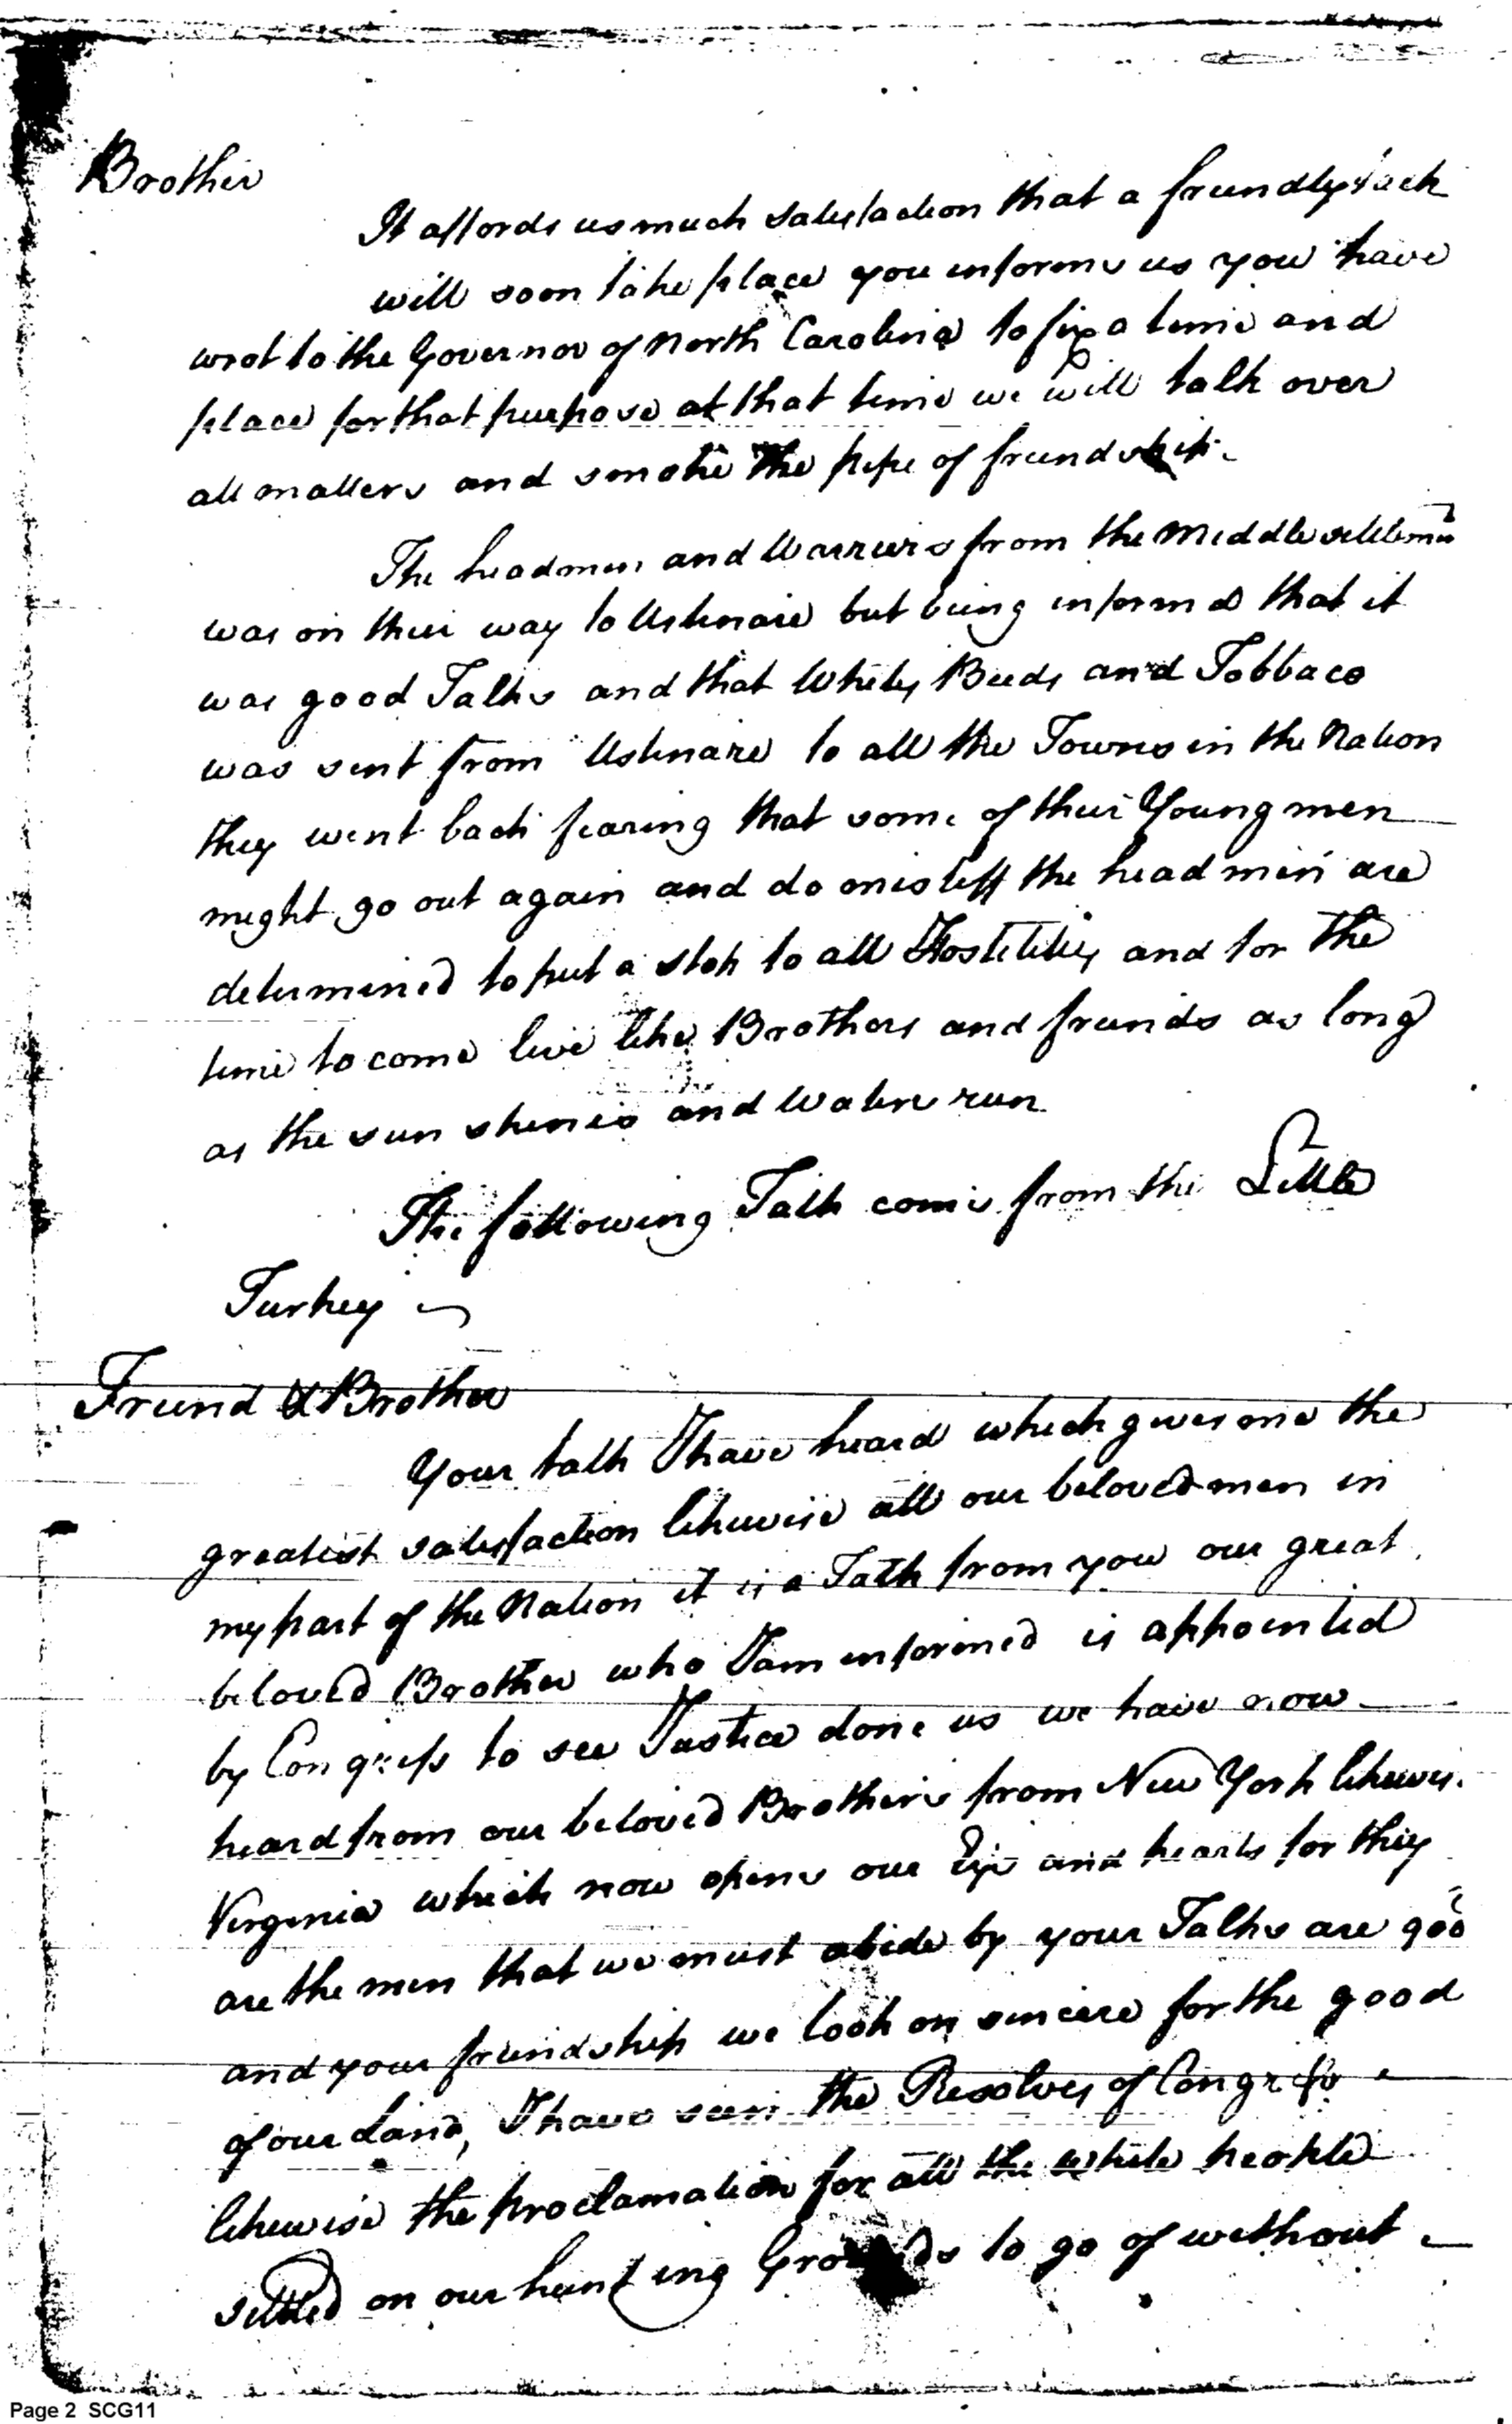 Brother
It affords us much satisfaction that a friendly talk
will soon take place you informs us you have
wrot to the Governor of North Carolina to fix a time and
place for that purpose at that time we will talk over
all matters and smoke the pipe of friendship
The headmen and Warriers from the Middle settlemts
was on their way to Ustenaire but being informd that it
was good Talks and that White Beeds and Tobbaco
was sent from Ustenaire to all the Towns in the Nation
they went back fearing that some of their Young men
might go out again and do mistiff the head men are
determined to put a stop to all Hostilities and for the
time to come live like Brothers and friends as long
as the sun shines and Waters run
The following Talk come from the Little
Turkey
Friend & Brother
Your talk I have heard which gives me the
greatest satisfaction likewise all our beloved men in
my part of the Nation it is a Talk from you our great
beloved Brother who I am informed is appointed
by Congress to see Justice done us we have now
heard from our beloved Brothers from New York likewise
Virginia which now opens our Eys and hearts for they
are the men that we must abide by your Talks are good
and your friendship we look on sincere for the good
of our Land, I have seen the Resolves of Congress
likewise the proclamation for all the white people
settled on our hunting Grounds to go of without
Page 2 SCG11